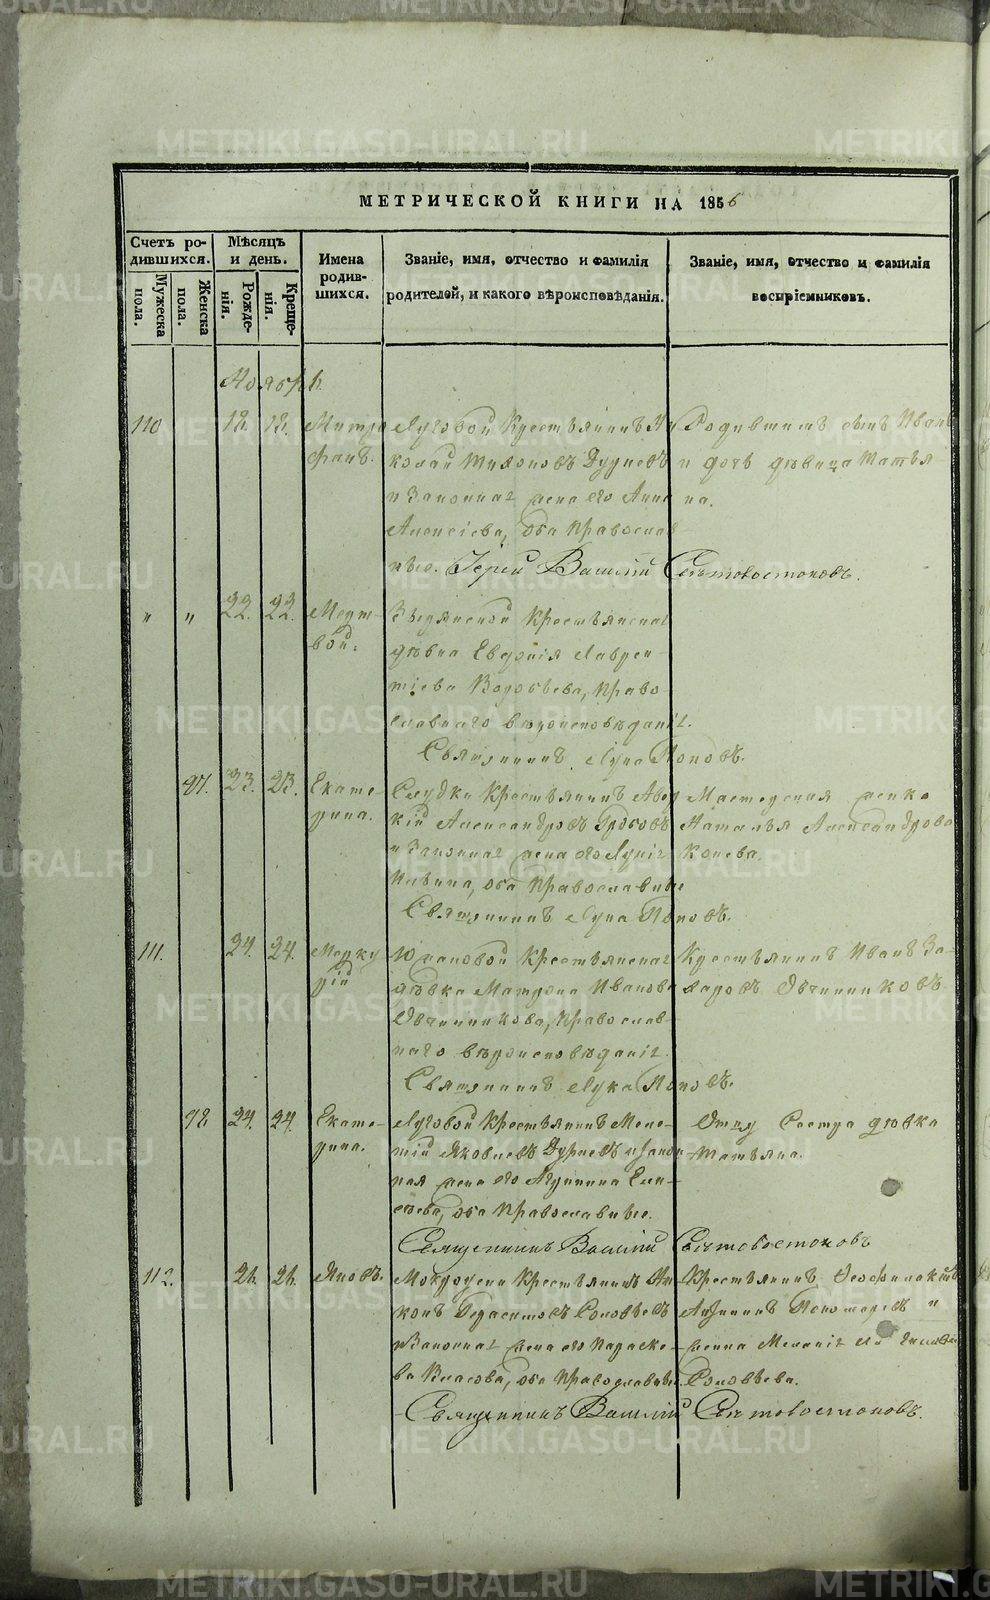 МЕТРИЧЕСКОЙ КНИГИ НА 1856
Счетъ ро-
дившихся.
Мужеска
пола.
Женска
пола.
Мѣсяцъ
и день.
Рожде-
нія.
Креще-
нія.
Имена
родив-
шихся.
Званіе, имя, отчество и фамилія
родителей, и какого вѣроисповѣданія.
Званіе, имя, отчество и фамилія
воспріемниковъ.
Ноябрь.
110 12. 12. Митро
фанъ.
Луговой Крестьянинъ Ни
колай
и Законная жена его Анна
Алексіева, оба Православ-
ные. Іерей Василій Свѣтовостоковъ.
Родившимъ сынъ Иванъ
и дочь дѣвица Татья
на.
" " 22. 22. Мерт-
вой.
Крестьянская
дѣвка Евдокія Лаврен-
тіева Воробьева, Право
славнаго вѣроисповѣданія.
Священникъ Лука Поповъ.
97. 23. 23. Екате-
рина.
Слудки Крестьянинъ Авер
кій Александровъ
и Законная жена его
оба Православные
Священникъ Лука Поповъ.
Мастерская женка
Наталья Александрова
Конева.
111. 24. 24. Мерку
рій
Крестьянская
дѣвка Матрона Иванова
Овчинникова, Православ-
наго вѣроисповѣданія.
Священникъ Лука Поповъ.
Крестьянинъ Иванъ За-
харовъ Овчинниковъ
98. 24. 24. Екате-
рина.
Луговой Крестьянинъ Меле-
тій Яковлевъ и Закон
ная жена его Агрипина Ели-
сѣева, оба Православные.
Священникъ Василій Свѣтовостоковъ
Отцу Сестра дѣвка
Татьяна.
112. 26. 26. Яковъ.
Крестьянинъ Ни
конъ Герасимовъ Соловьевъ
и Законная жена его Параске-
ва Власова, оба Православные.
Священникъ Василій Свѣтовостоковъ.
Крестьянинъ Феофилактъ
Пономаревъ и
женка Меланія
Соловьева.